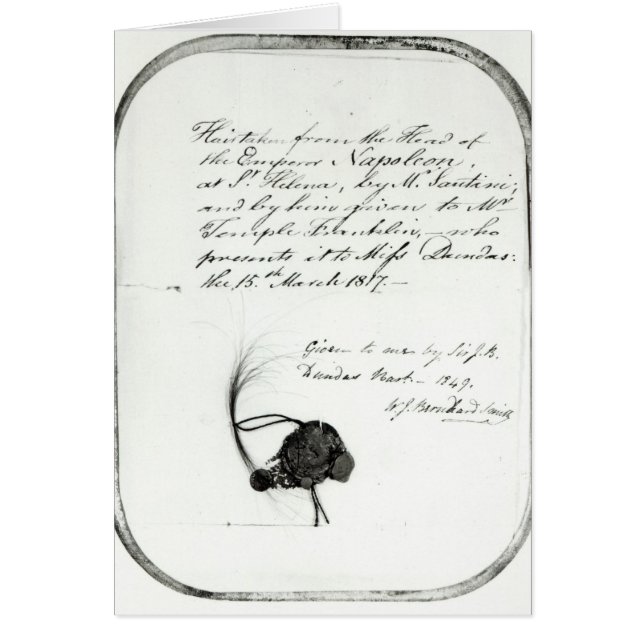 Hair taken from the Head of
the Emperor Napoleon,
at St. Helena, by Mr. Santini;
and by him given to Mr
Temple Franklin, — who
presents it to Miss Dundas:
the 15.th March 1817. —
Given to me by Sir J. B.
Dundas Bart — 1849.
W. J. Bernhard Smith